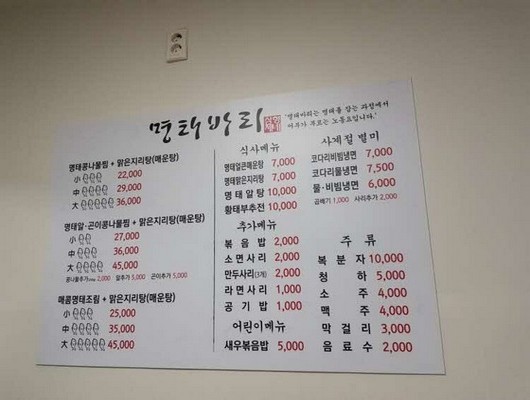 명태바리
"명태바리는 명태를 잡는 과정에서
어부가 부르는 노동요입니다."
명태콩나물찜 + 맑은지리탕(매운탕)
小 22,000
中 29,000
大 36,000
명태알·곤이콩나물찜 + 맑은지리탕(매운탕)
小 27,000
中 36,000
大 45,000
콩나물추가 2,000 알추가 5,000 곤이추가 5,000
매콤명태조림 + 맑은지리탕(매운탕)
小 25,000
中 35,000
大 45,000
식사메뉴
명태알곤매운탕 7,000
명태맑은지리탕 7,000
명태알탕 10,000
황태부추전 10,000
추가메뉴
볶음밥 2,000
소면사리 2,000
만두사리(3개) 2,000
라면사리 1,000
공기밥 1,000
어린이메뉴
새우볶음밥 5,000
사계절 별미
코다리비빔냉면 7,000
코다리물냉면 7,500
물·비빔냉면 6,000
곱빼기 1,000 사리추가 2,000
주류
복분자 10,000
청하 5,000
소주 4,000
맥주 4,000
막걸리 3,000
음료수 2,000